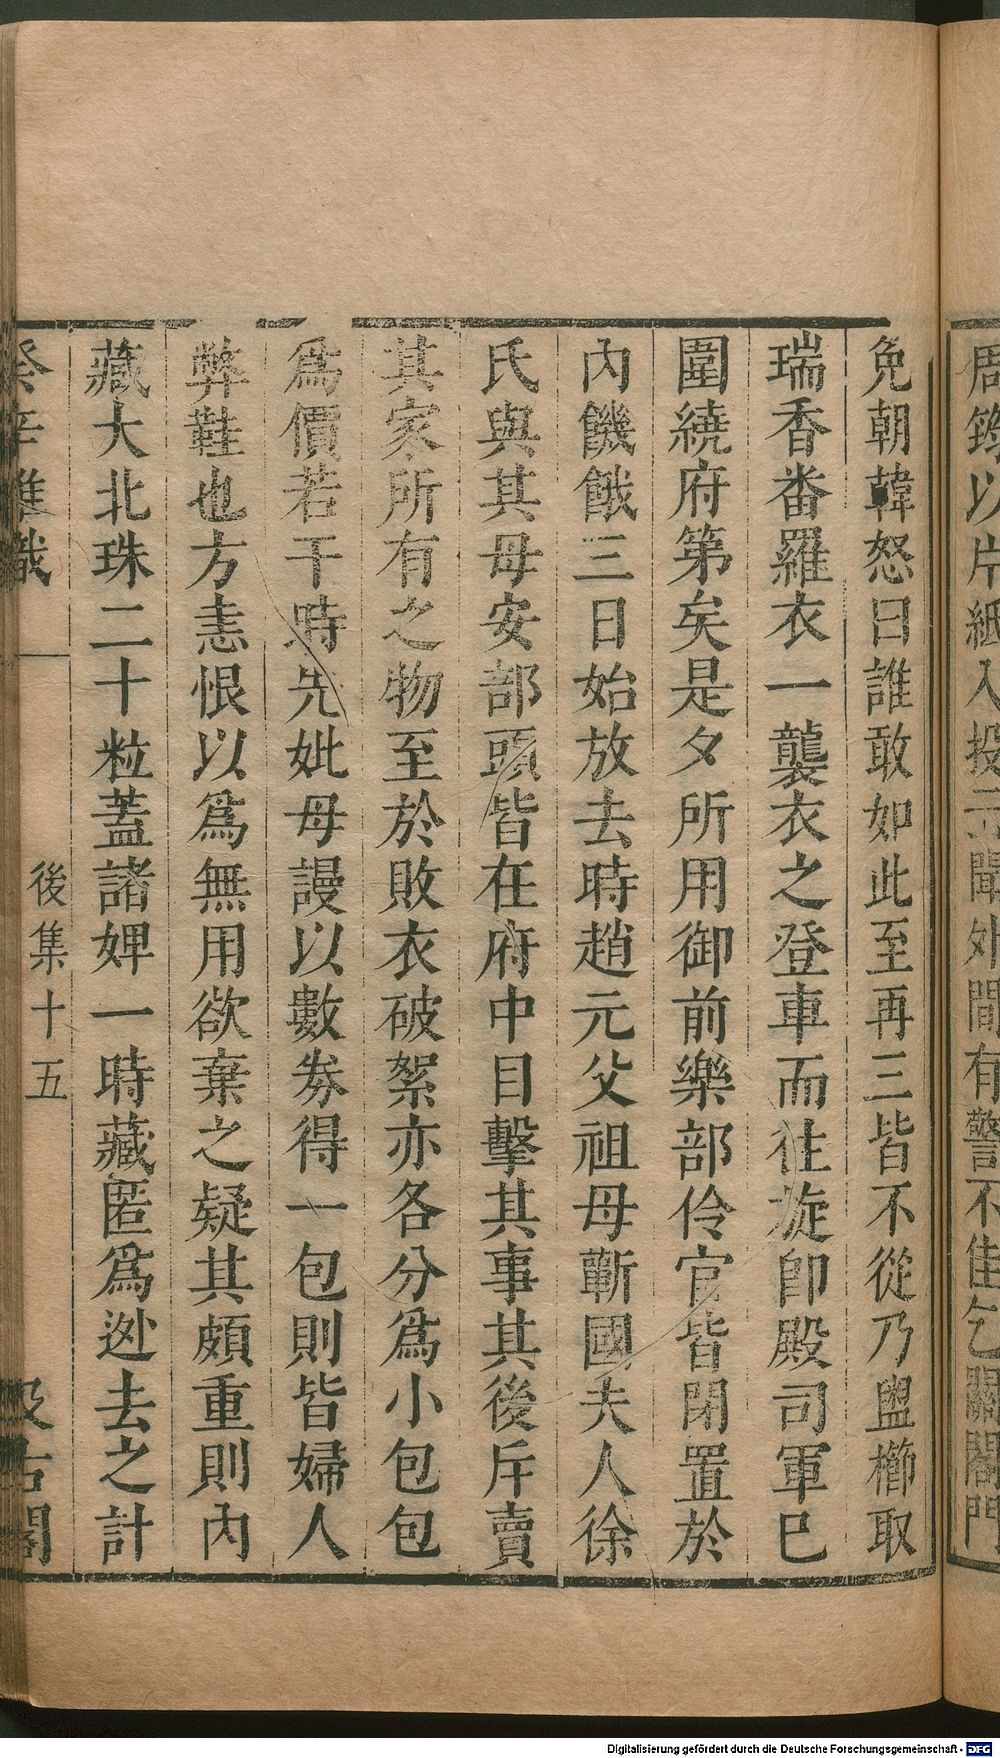 周筠以片紙入投云聞外間有警不佳乞關閤門
免朝韓怒曰誰敢如此至再三皆不從乃盥櫛取
瑞香番羅衣一襲衣之登車而往旋卽殿司軍已
圍繞府第矣是夕所用御前樂部伶官皆閉置於
內饑餓三日始放去時趙元父祖母蘄國夫人徐
氏與其母安部頭皆在府中目擊其事其後斥賣
其家所有之物至於敗衣破絮亦各分爲小包包
爲價若干時先妣母謾以數劵得一包則皆婦人
弊鞋也方恚恨以爲無用欲棄之疑其頗重則內
藏大北珠二十粒蓋諸婢一時藏匿爲逃去之計
癸辛雜識
後集十五
汲古閣
Digitalisierung gefördert durch die Deutsche Forschungsgemeinschaft - DFG